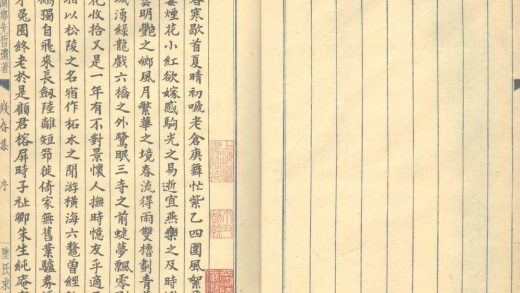 春寒歇首夏晴初唬老倉庚舞忙紫乙四圍風絮
煙花小紅欲嫁感駒光之易逝宜燕樂之及時
雲明艷之鄉風月繁華之境春流得雨雙槳劃青
城湧綠龍戲六橋之外鷺眠三寺之前蜨夢飄零
花收拾又是一年有不對景懷人撫時憶友乎適
相以松陵之名宿作柘水之閒游橫海六鰲曾經
鶴獨自飛來長劍陸離短笻徙倚家無舊業驢券
才兔園終老於是顧君榕屏時子祉卿朱生純庵
鄉先哲遺著
春集 序
陸氏求